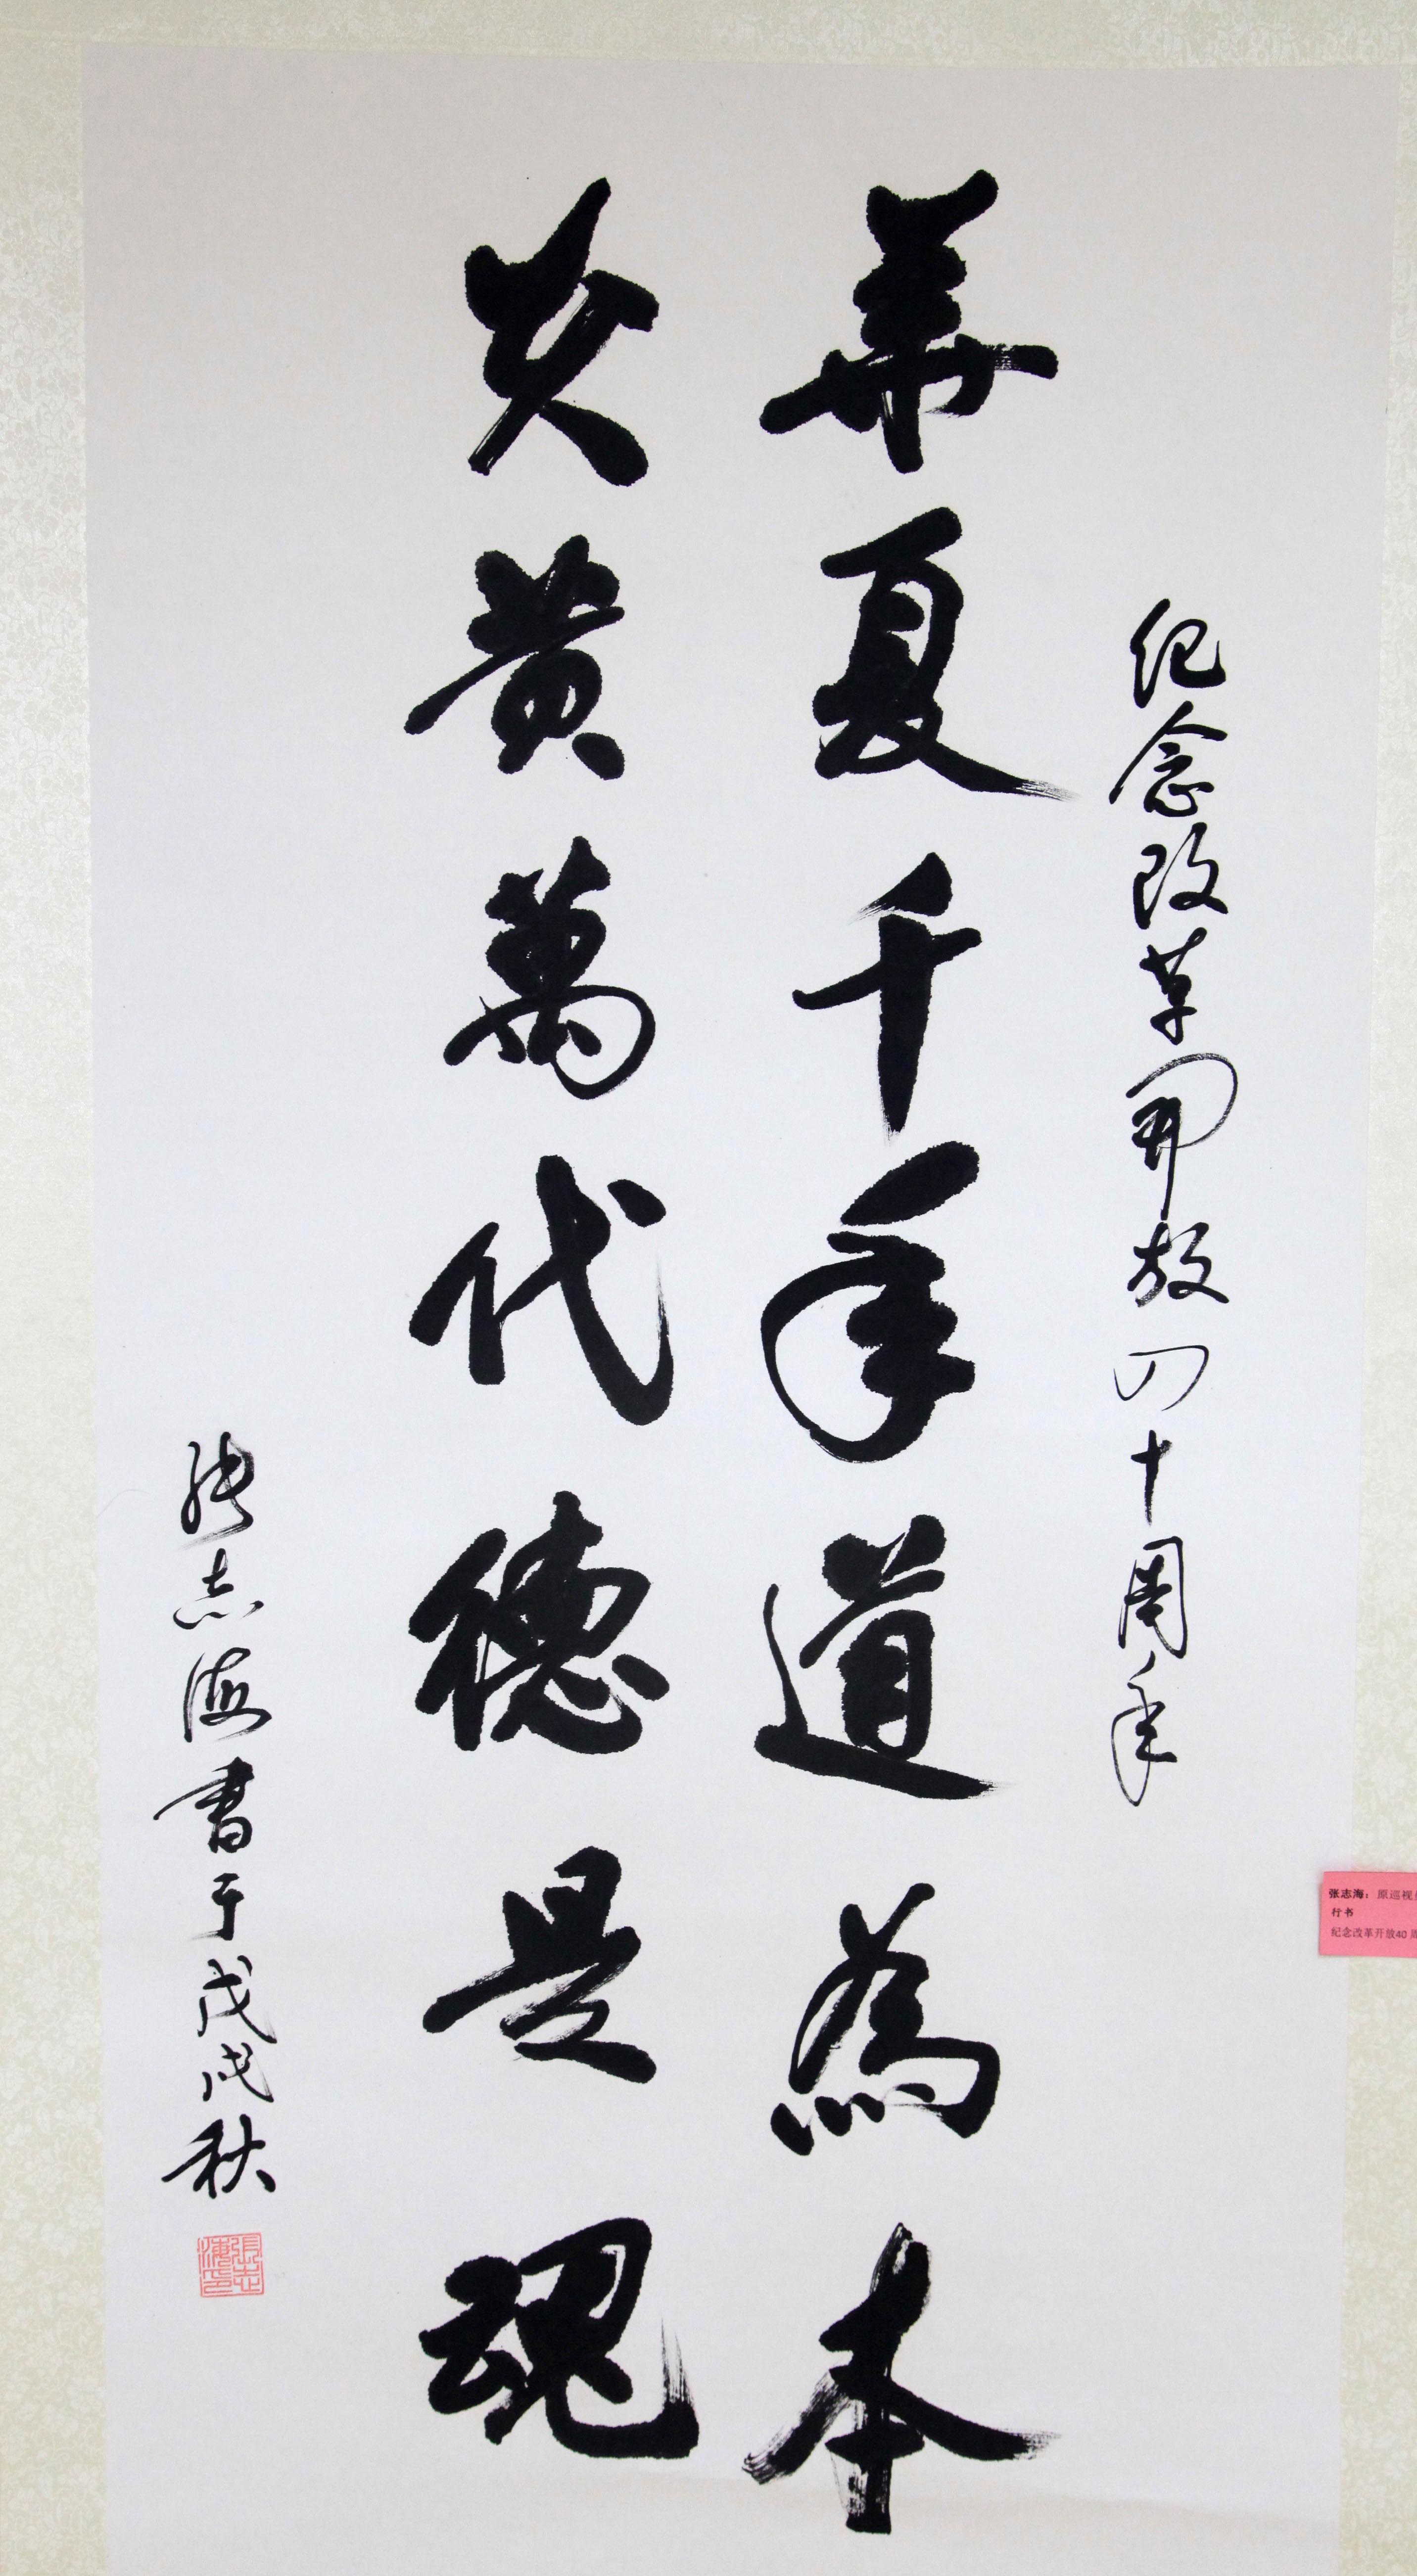 纪念改革開放四十周年
華夏千年道為本
炎黄萬代德是魂
张志海書于戊戌秋
張志海印
张志海：原巡视
行书
纪念改革开放40周